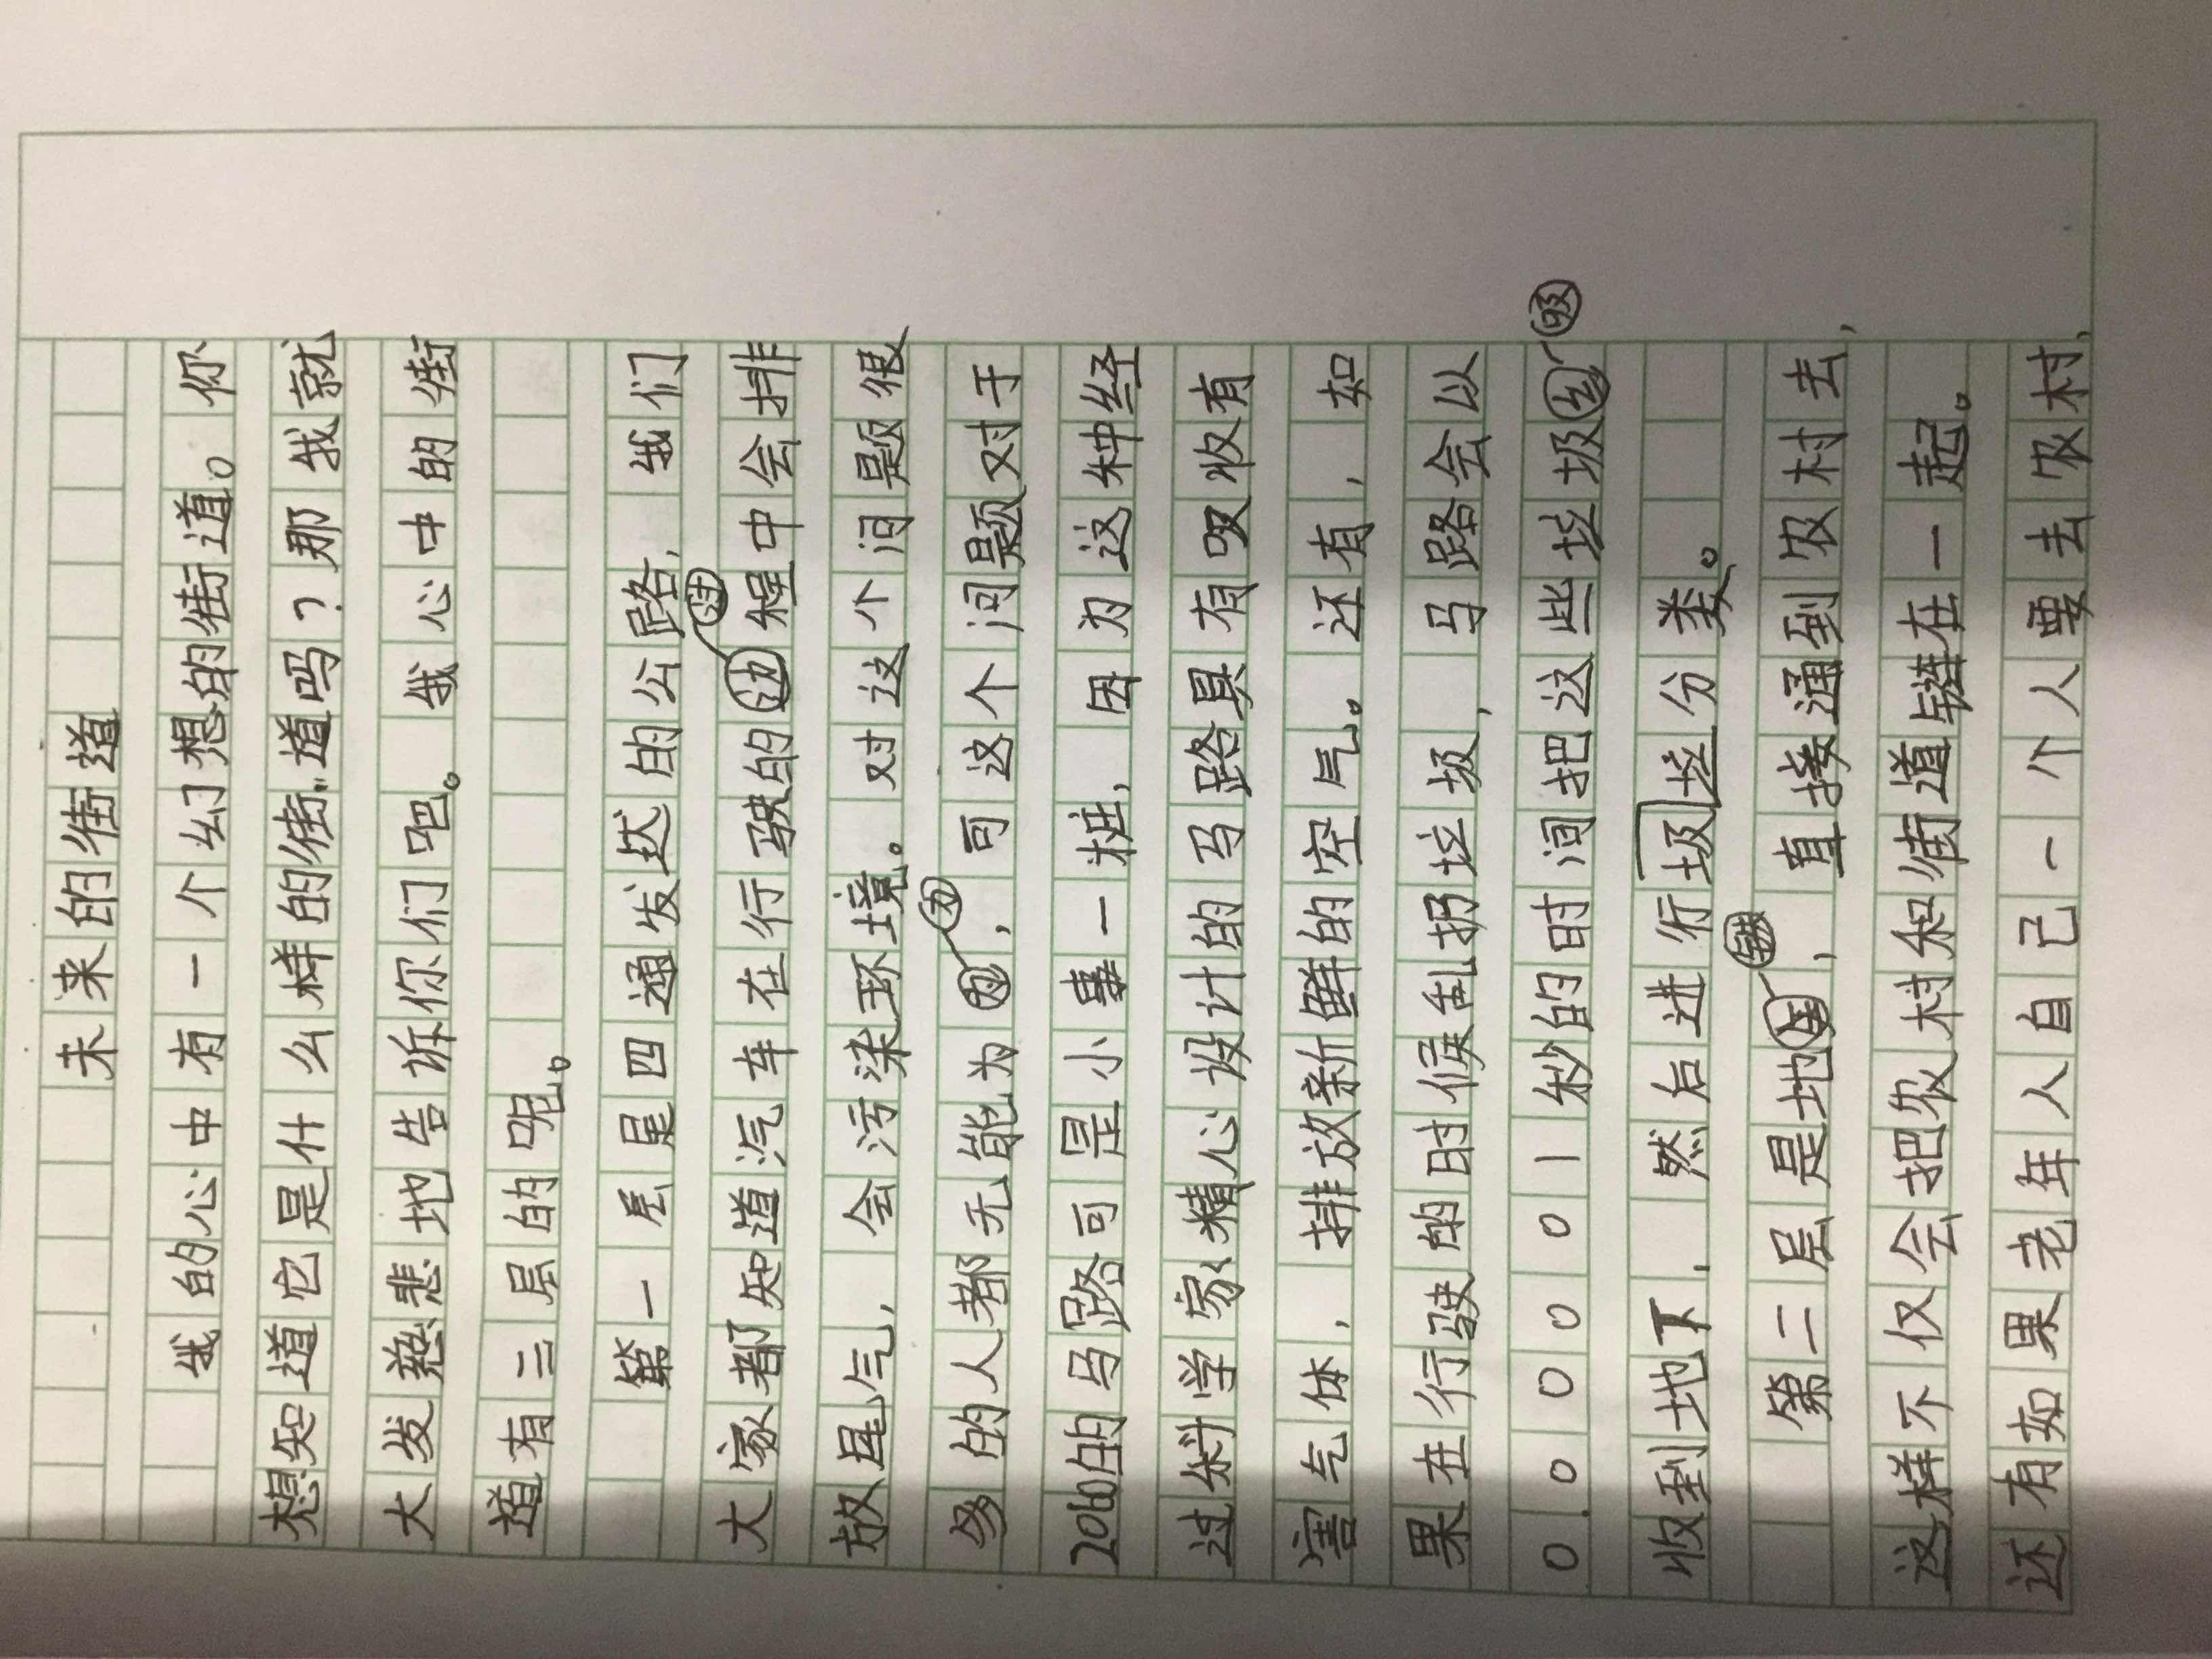 未来的街道
我的心中有一个幻想的街道。你
想知道它是什么样的街道吗？那我就
大发慈悲地告诉你们吧。我心中的街
道有三层的呢。
第一层是四通发达的公路，我们
大家都知道汽车在行驶的过程中会排
放尾气，会污染环境。对这个问题很
多的人都无能为力，可这个问题对于
2060的马路可是小事一桩，因为这种经
过科学家精心设计的马路具有吸收有
害气体，排放新鲜的空气。还有，如
果在行驶的时候乱扔垃圾，马路会以
0.00001秒的时间把这些垃圾吸
收到地下，然后进行垃圾分类。
第二层是地铁，直接通到农村去，
这样不仅会把农村和街道链在一起。
还有如果老年人自己一个人要去农村，